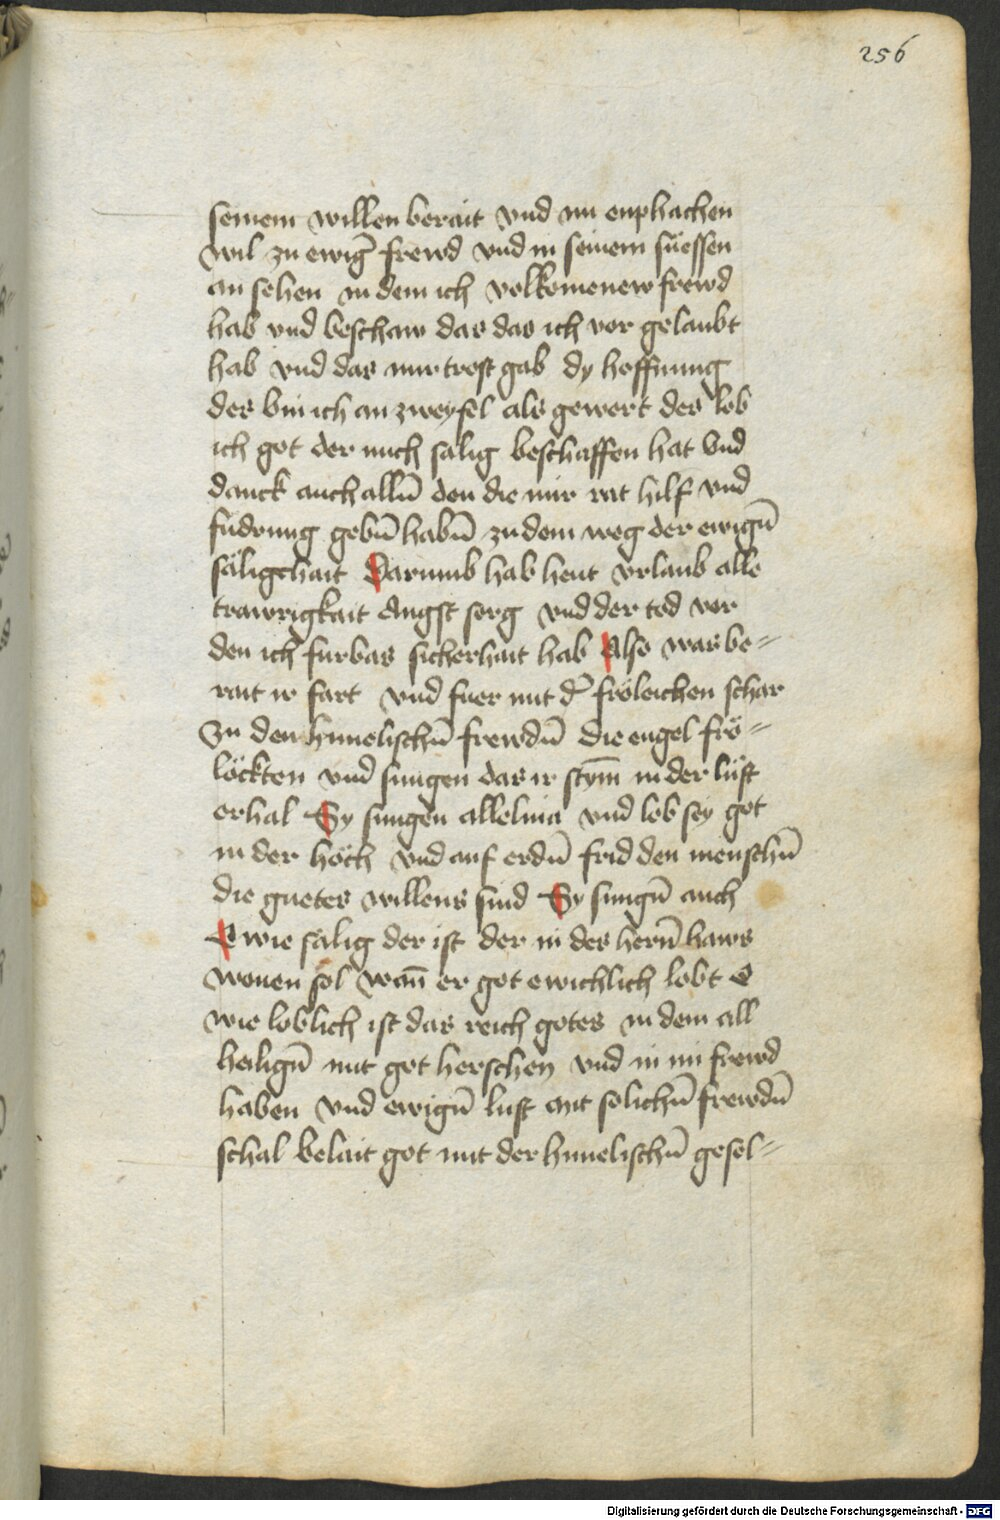 256
seinem willen berait vnd mi enphachen
wil zu ewiḡ frewd vnd in seinem süessen
an sehen in dem ich volkomenew frewd
hab vnd beschaw das das ich vor gelaubt
hab vnd das mir trost gab dy hoffnung
des bin ich an zweyfel als gewert des lob
ich got der mich sälig beschaffen hat Vnd
danck auch allñ den die mir rat hilf vnd
fudrung gebñ habñ zu dem weg der ewigñ
säligchait Darumb hab heut vrlaub alle
trawrigkait Angst sorg vnd der tod vor
den ich furbas sicherhait hab Also was be=
rait ir fart vnd fuer mit d̄ fröleichen schar
zu den himelischñ frewdñ die engel frö=
löckten vnd sungen das ir stym̄ in der lüft
erhal Sy sungen alleluia vnd lob sey got
in der höch vnd auf erdñ frid den menschñ
die guetes willens sind Sy sungñ auch
O wie sälig der ist der in des herñ haws
wonen sol wan̄ er got ewichlich lobt O
wie loblich ist das reich gotes in dem all
heiligñ mit got herschen vnd in im frewd
haben vnd ewigñ lust mit solichñ frewdñ
schal belait got mit der himelischñ gesel=
Digitalisierung gefördert durch die Deutsche Forschungsgemeinschaft - DFG